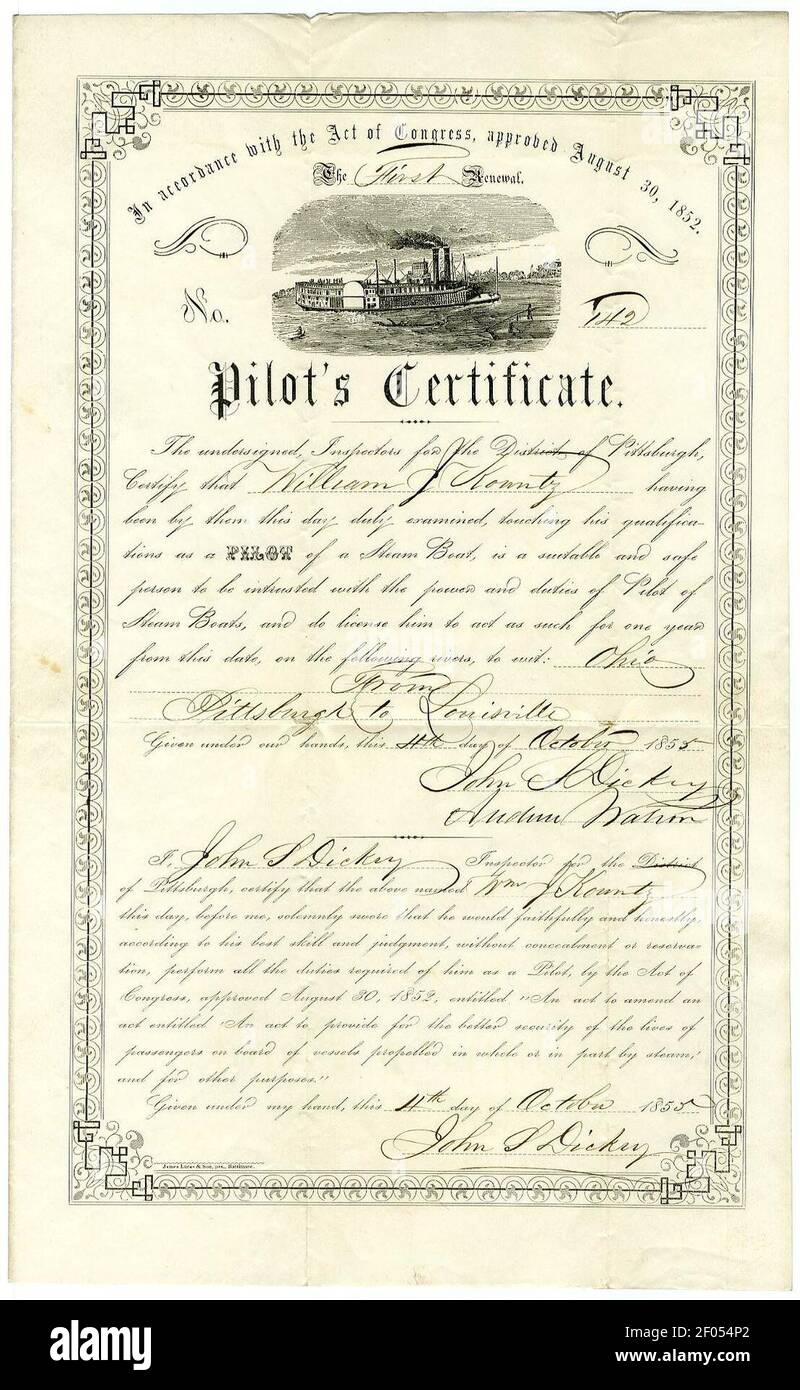 In accordance with the Act of Congress, approved August 30, 1852.
The First Renewal.
No. 142
Pilot's Certificate.
The undersigned, Inspectors for the District of Pittsburgh,
Certify that William J Kountz having
been by them this day duly examined, touching his qualifica-
tions as a PILOT of a Steam Boat, is a suitable and safe
person to be intrusted with the power and duties of Pilot of
Steam Boats, and do license him to act as such for one year
from this date, on the following rivers, to wit: Ohio
From
Pittsburgh to Louisville
Given under our hands, this 4th day of October 1855
John S Dickey
Andrew Watson
I, John S Dickey Inspector for the District
of Pittsburgh, certify that the above named Wm J Kountz
this day, before me, solemnly swore that he would faithfully and honestly,
according to his best skill and judgment, without concealment or reserva-
tion, perform all the duties required of him as a Pilot, by the Act of
Congress, approved August 30, 1852, entitled "An act to amend an
act entitled 'An act to provide for the better security of the lives of
passengers on board of vessels propelled in whole or in part by steam,'
and for other purposes."
Given under my hand, this 4th day of October 1855
John S Dickey
James Lucas & Son, prs., Baltimore.
alamy
Image ID: 2F054P2
www.alamy.com